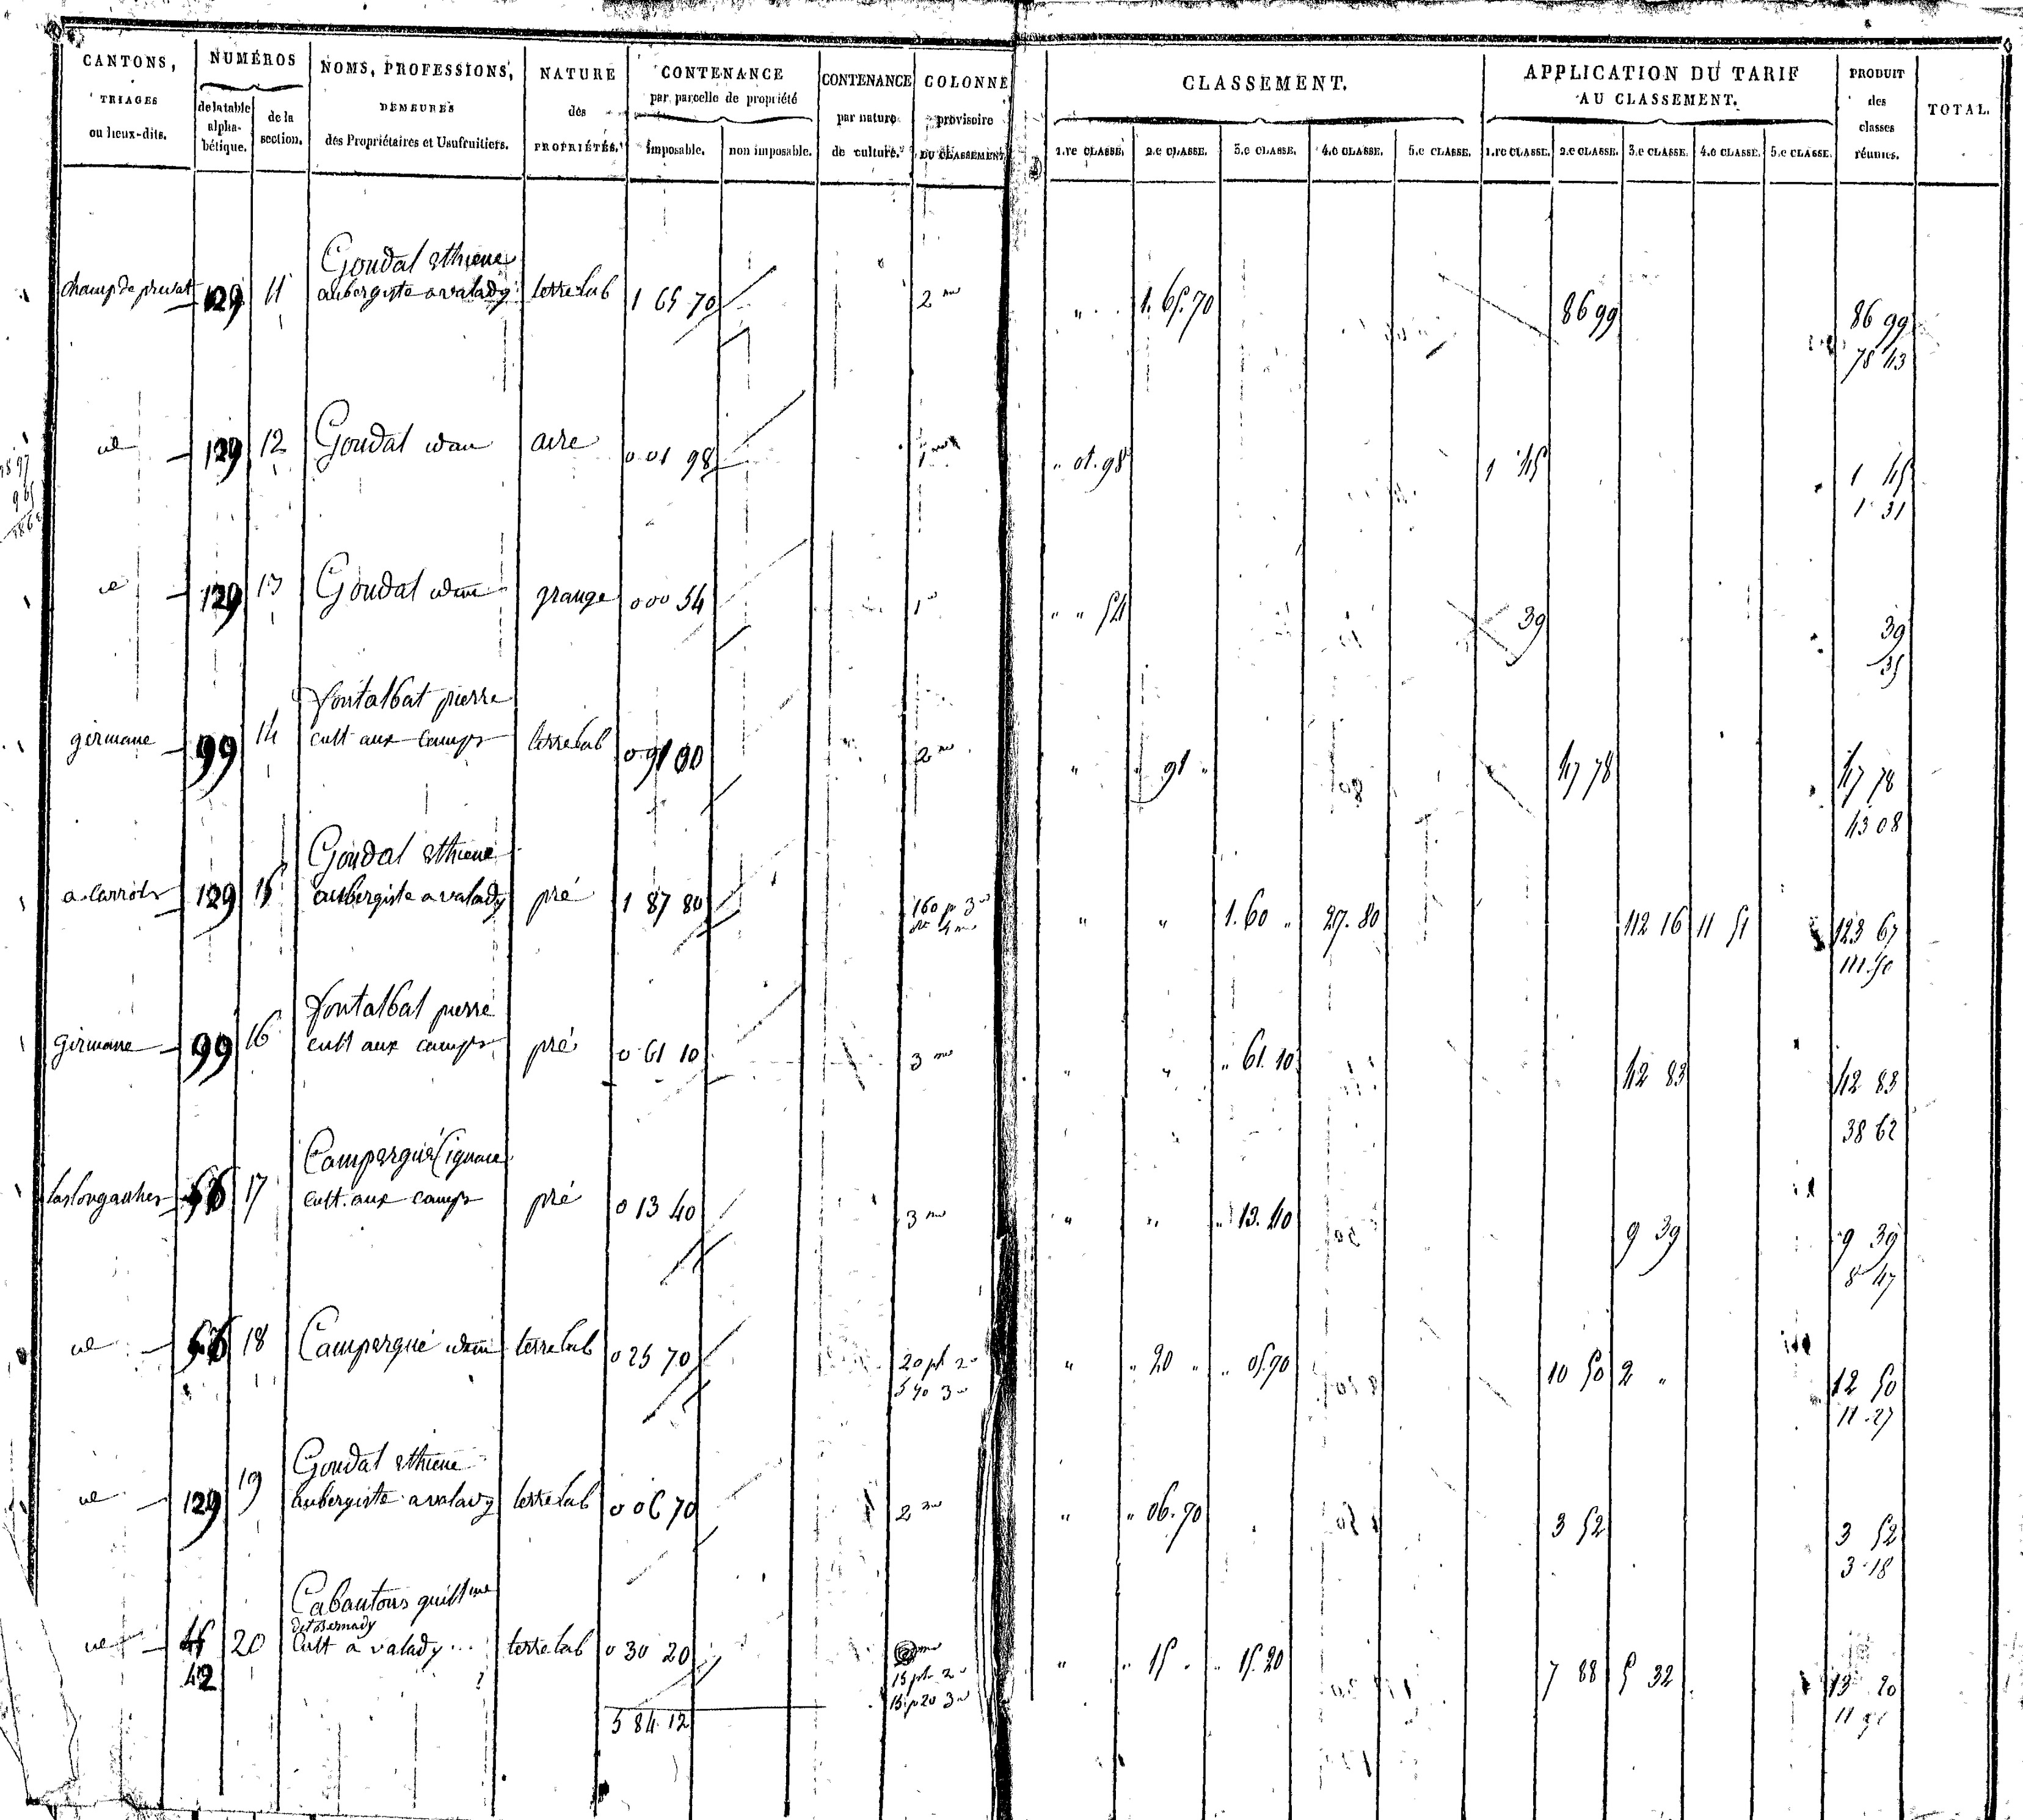 CANTONS, TRIAGES ou lieux-dits.
NUMÉROS de la table alpha-bétique. de la section.
NOMS, PROFESSIONS, DEMEURES des Propriétaires et Usufruitiers.
NATURE des PROPRIÉTÉS.
CONTENANCE par parcelle de propriété imposable. non imposable.
CONTENANCE par nature de culture.
COLONNE provisoire DU CLASSEMENT
CLASSEMENT.
1.re CLASSE. 2.e CLASSE. 3.e CLASSE. 4.e CLASSE. 5.e CLASSE.
APPLICATION DU TARIF AU CLASSEMENT.
1.re CLASSE. 2.e CLASSE. 3.e CLASSE. 4.e CLASSE. 5.e CLASSE.
PRODUIT des classes réunies.
TOTAL.
Goudal ethiene
champ de privat 129 11 aubergiste a valady terre lab 1 65 70 2me " 1. 65. 70 86 99 86 99
78 43
129 12 Goudal idem aire 0 01 98 1 " 01. 98 1 45 1 45
1 31
129 13 Goudal idem grange 0 00 54 1 " " 54 39 39
35
fontalbat pierre
girmane 99 14 cult aux camps terre lab 0 91 00 2me " 91 " 47 78 47 78
43 08
Goudal ethiene
a carrols 129 15 aubergiste a valady pré 1 87 80 160 p 3 " " 1. 60 " 27. 80 112 16 11 51 123 67
111 50
fontalbat pierre
girmane 99 16 cult aux camps pré 0 61 10 3me " " " 61. 10 42 83 42 83
38 62
Campergué ignace
17 cult. aux camps pré 0 13 40 3me " " " 13. 40 9 39 9 39
8 47
18 Campergué idem terre lab 0 25 70 20 pt 2 " " 20 " " 05. 70 10 50 2 " 12 50
5 70 3 11 27
Goudal ethiene
129 19 aubergiste a valady terre lab 0 06 70 2me " " 06. 70 3 52 3 52
3 18
Cabantous guilme
dit Bernady
20 cult a valady terre lab 0 30 20 " " 15 " " 15. 20 7 88 5 32 13 20
42 15 pt 2
15 p 20 3
5 84 12